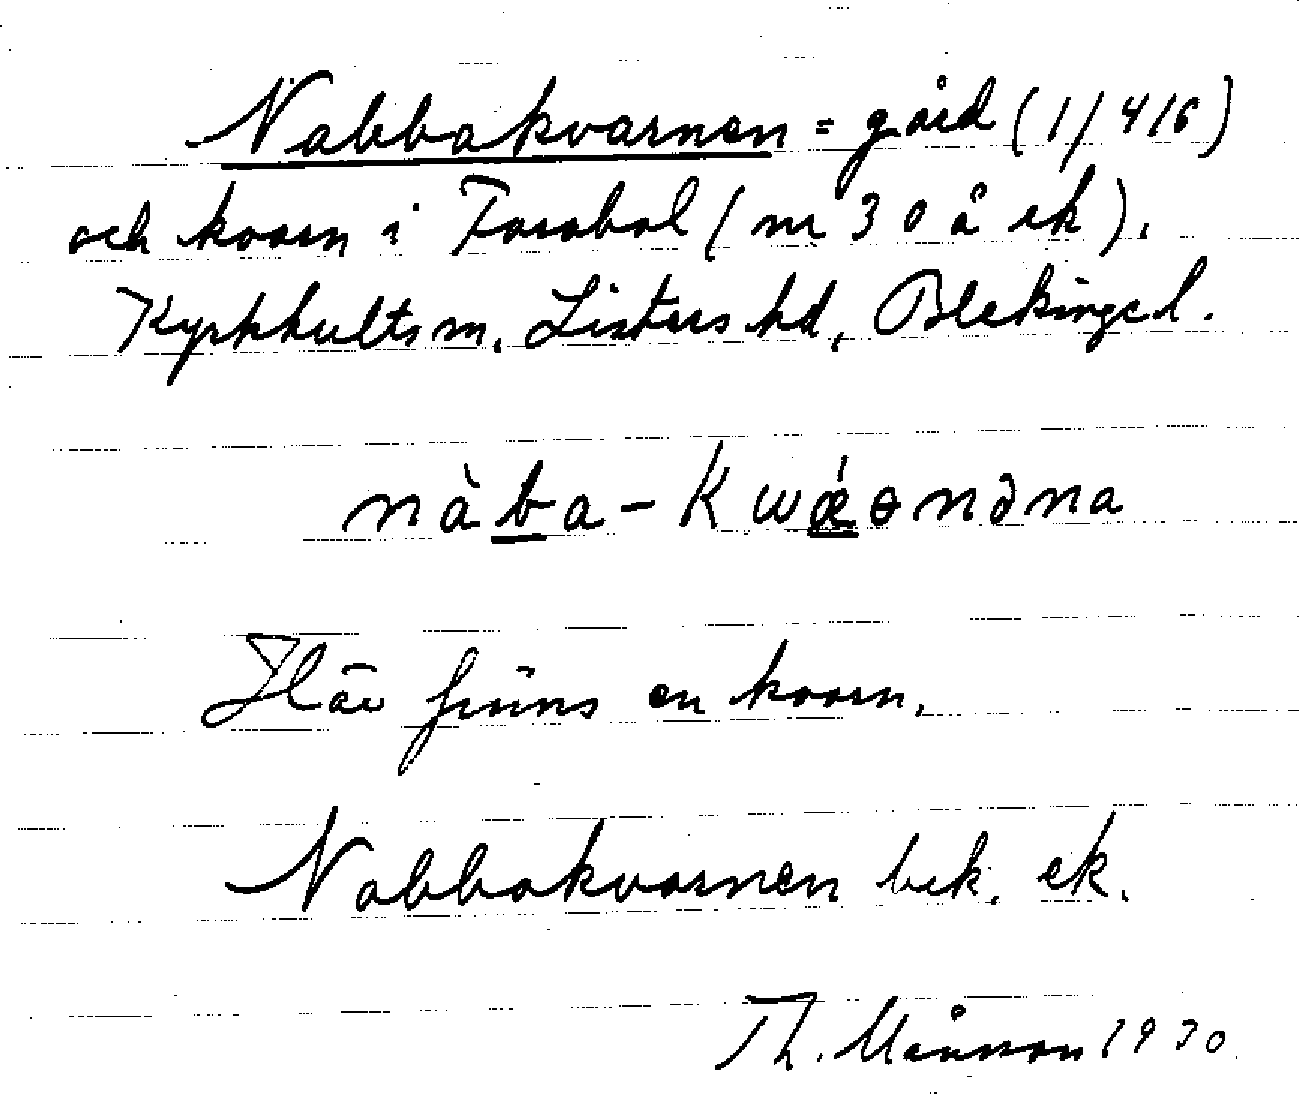 Nabbakvarnen = gård (1/416)
och kvarn i Farabol (nr 30 å ek).
Kyrkhults sn, Listers hd, Blekinge l.
nàba-kwǽɵnəna
Här finns en kvarn.
Nabbakvarnen bek. ek.
Th. Månsson 1930